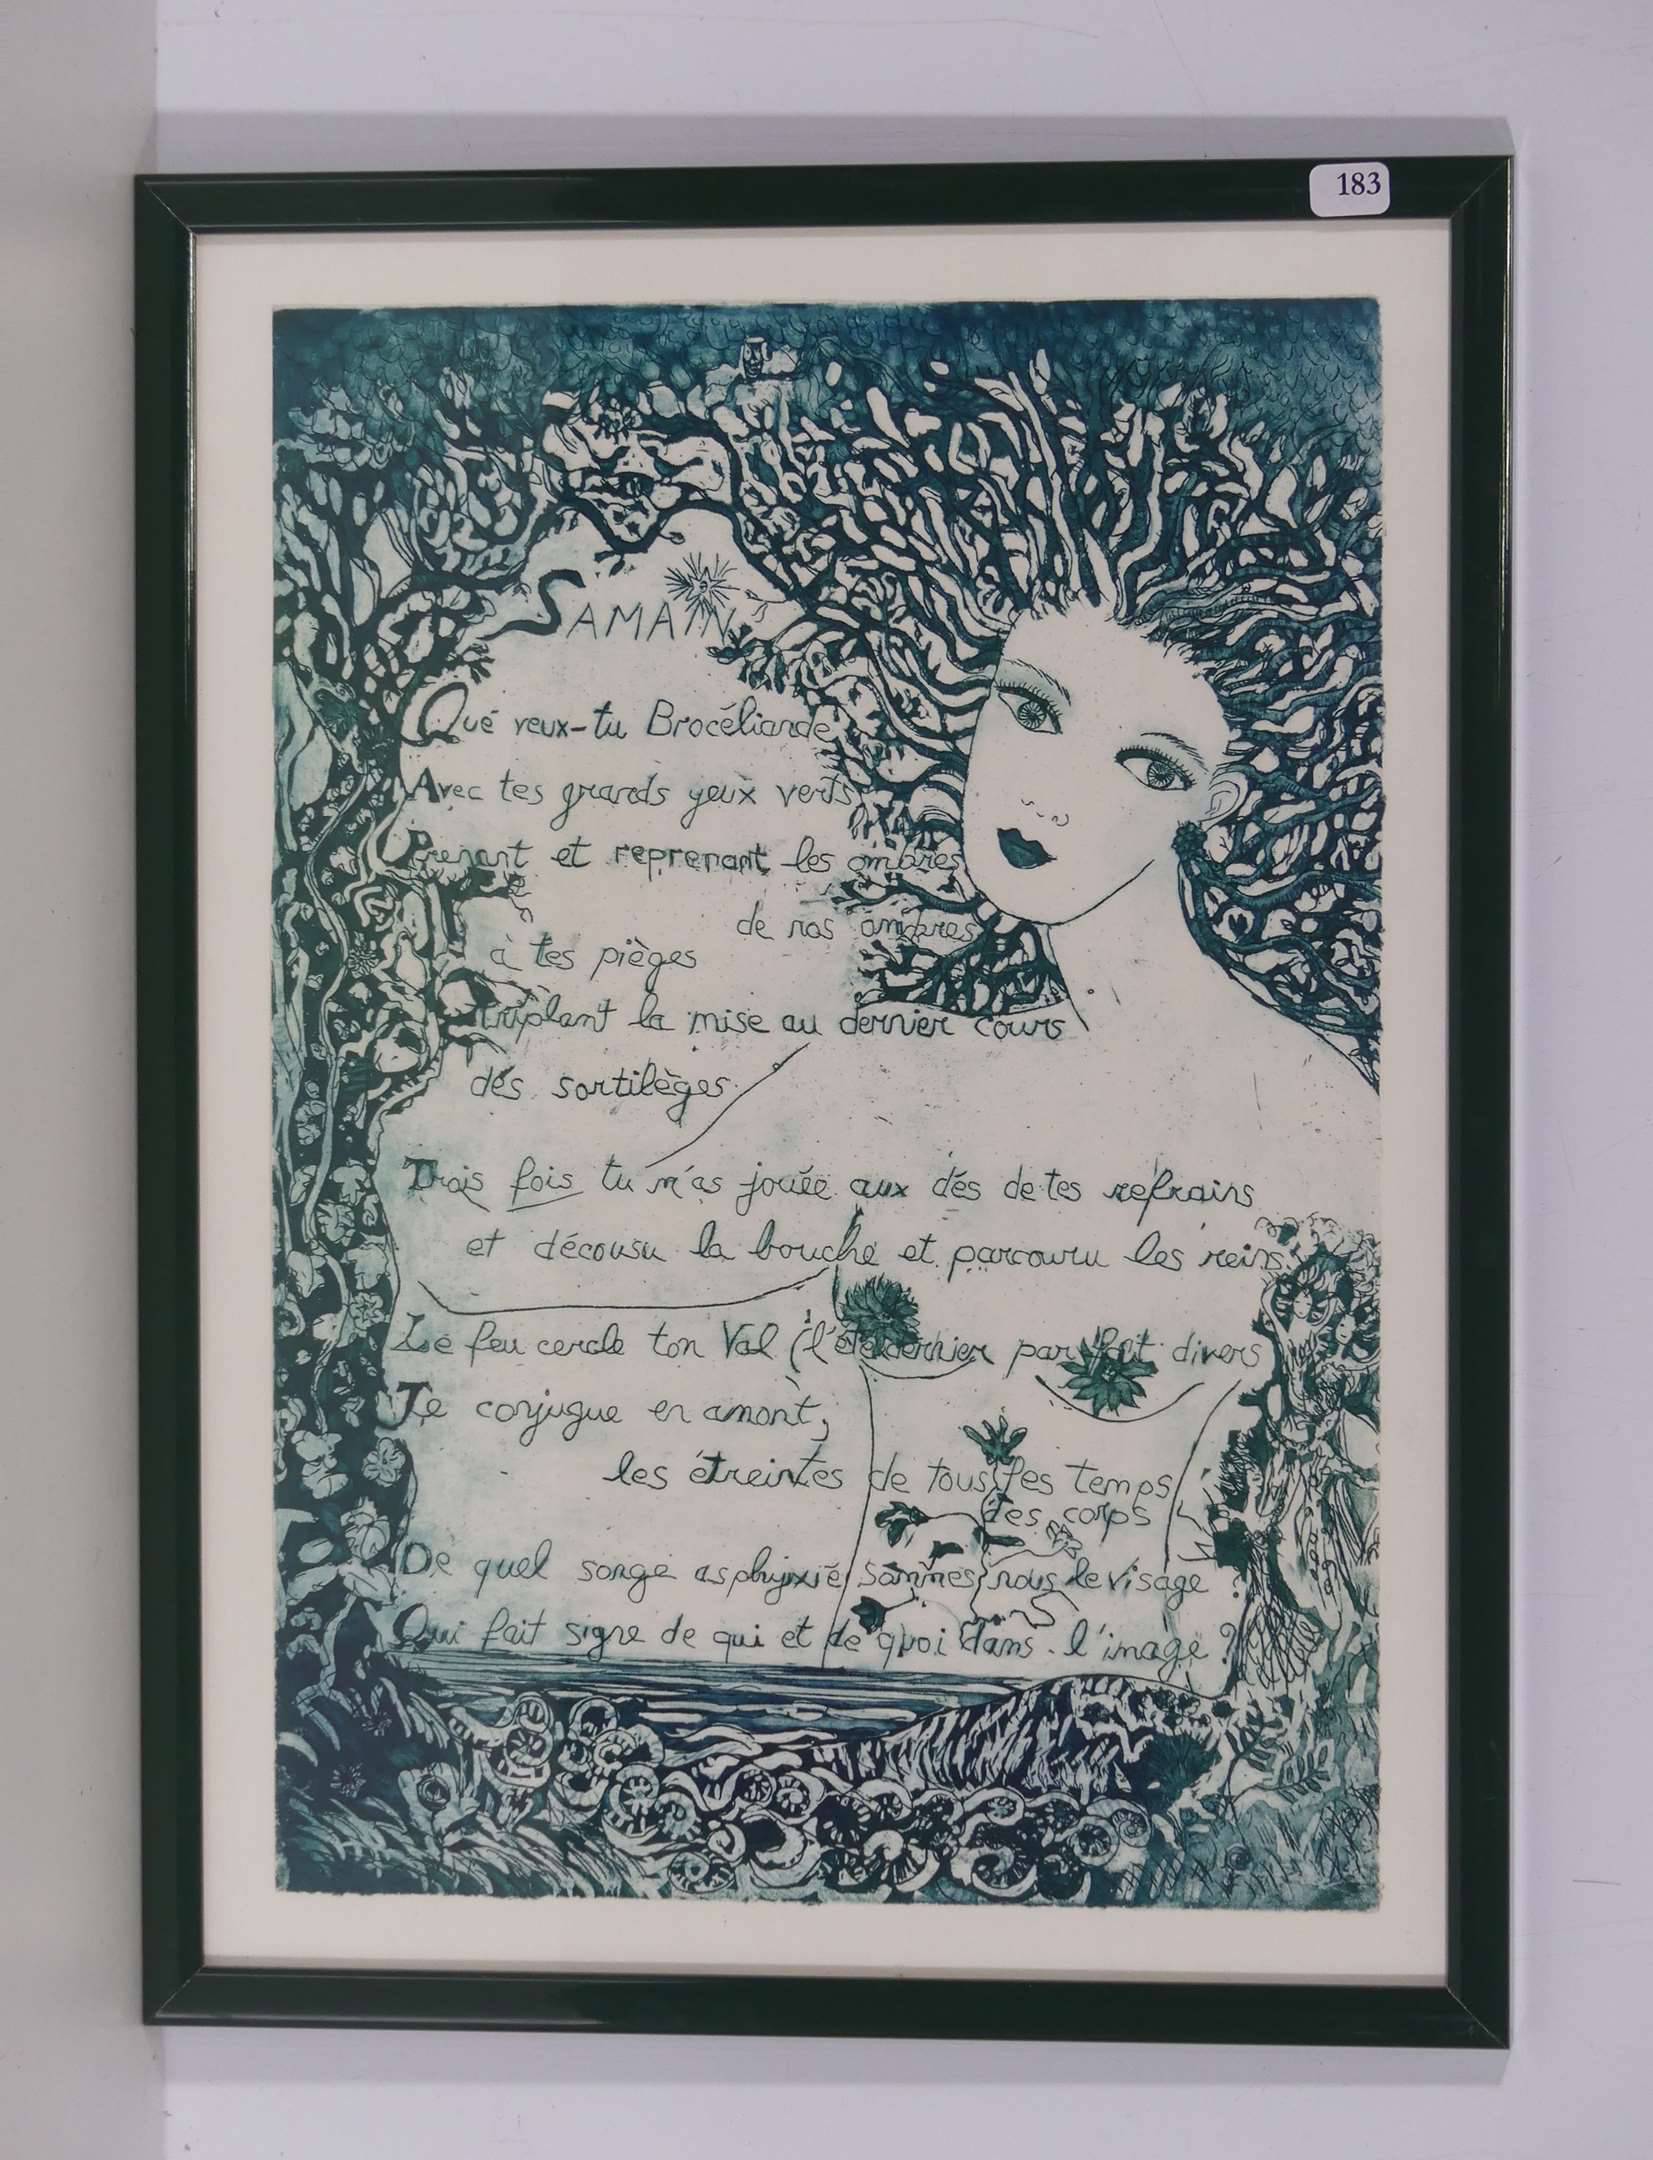 183
SAMAIN
Qué veux-tu Brocéliande
Avec tes grands yeux verts
Prenant et reprenant les ombres
de nos ombres
à tes pièges
triplant la mise au dernier cours
des sortilèges.
Trois fois tu m'as jouée aux dés de tes refrains
et décousu la bouche et parcouru les reins
Le feu cercle ton Val (l'été dernier par fait divers
Je conjugue en amont,
les étreintes de tous les temps
des corps
De quel songe asphyxié sommes nous le visage ?
Qui fait signe de qui et de quoi dans l'image ?